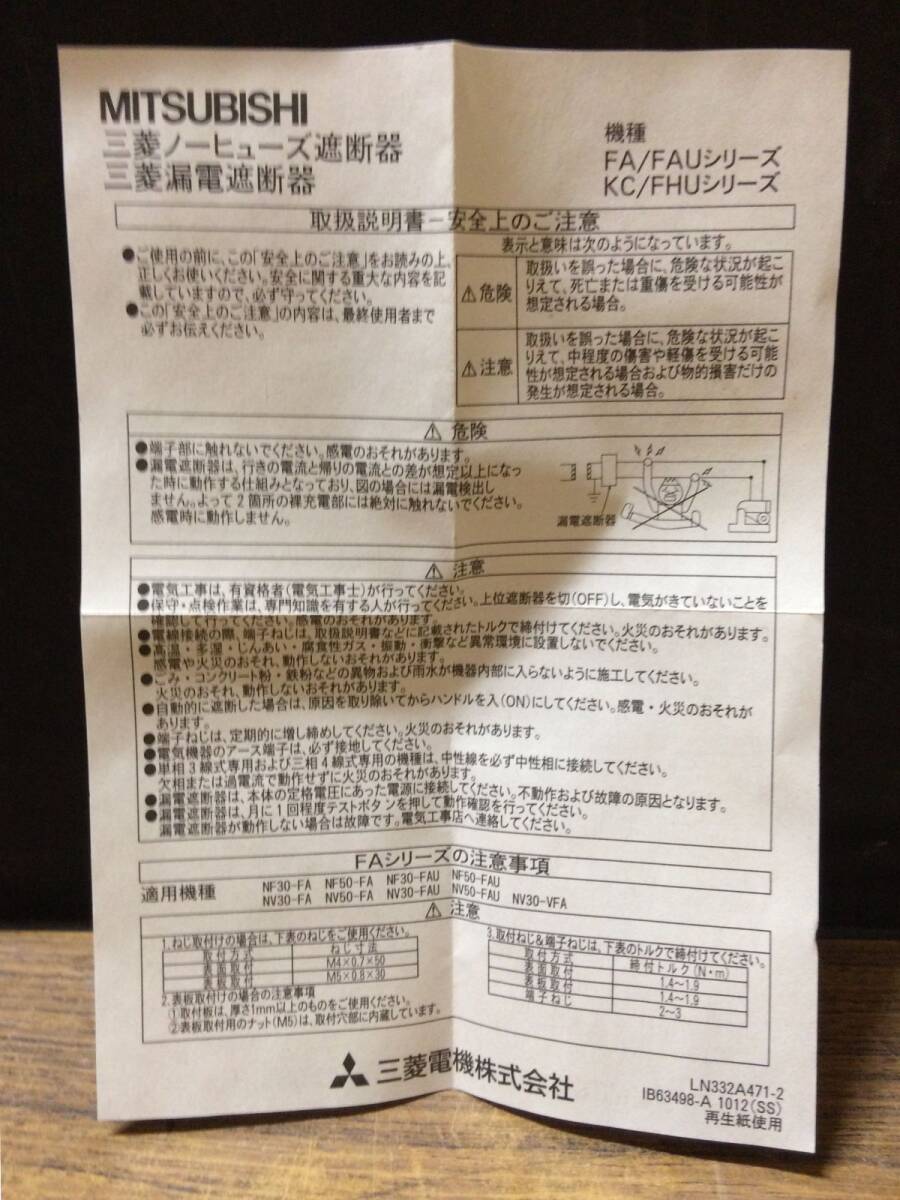 MITSUBISHI
三菱ノーヒューズ遮断器
三菱漏電遮断器
機種
FA/FAUシリーズ
KC/FHUシリーズ
取扱説明書－安全上のご注意
●ご使用の前に、この「安全上のご注意」をお読みの上、
正しくお使いください。安全に関する重大な内容を記
載していますので、必ず守ってください。
●この「安全上のご注意」の内容は、最終使用者まで
必ずお伝えください。
表示と意味は次のようになっています。
⚠危険
取扱いを誤った場合に、危険な状況が起こ
りえて、死亡または重傷を受ける可能性が
想定される場合。
⚠注意
取扱いを誤った場合に、危険な状況が起こ
りえて、中程度の傷害や軽傷を受ける可能
性が想定される場合および物的損害だけの
発生が想定される場合。
⚠ 危険
●端子部に触れないでください。感電のおそれがあります。
●漏電遮断器は、行きの電流と帰りの電流との差が想定以上になっ
た時に動作する仕組みとなっており、図の場合には漏電検出し
ません。よって２箇所の裸充電部には絶対に触れないでください。
感電時に動作しません。
漏電遮断器
⚠ 注意
●電気工事は、有資格者(電気工事士)が行ってください。
●保守・点検作業は、専門知識を有する人が行ってください。上位遮断器を切(OFF)し、電気がきていないことを
確認して行ってください。感電のおそれがあります。
●電線接続の際、端子ねじは、取扱説明書などに記載されたトルクで締付けてください。火災のおそれがあります。
●高温・多湿・じんあい・腐食性ガス・振動・衝撃など異常環境に設置しないでください。
感電や火災のおそれ、動作しないおそれがあります。
●ごみ・コンクリート粉・鉄粉などの異物および雨水が機器内部に入らないように施工してください。
火災のおそれ、動作しないおそれがあります。
●自動的に遮断した場合は、原因を取り除いてからハンドルを入(ON)にしてください。感電・火災のおそれが
あります。
●端子ねじは、定期的に増し締めしてください。火災のおそれがあります。
●電気機器のアース端子は、必ず接地してください。
●単相３線式専用および三相４線式専用の機種は、中性線を必ず中性相に接続してください。
欠相または過電流で動作せずに火災のおそれがあります。
●漏電遮断器は、本体の定格電圧にあった電源に接続してください。不動作および故障の原因となります。
●漏電遮断器は、月に１回程度テストボタンを押して動作確認を行ってください。
漏電遮断器が動作しない場合は故障です。電気工事店へ連絡してください。
FAシリーズの注意事項
適用機種
NF30-FA NF50-FA NF30-FAU NF50-FAU
NV30-FA NV50-FA NV30-FAU NV50-FAU NV30-VFA
⚠ 注意
1.ねじ取付けの場合は、下表のねじをご使用ください。
取付方式 ねじ寸法
表面取付 M4×0.7×50
表板取付 M5×0.8×30
2.表板取付けの場合の注意事項
①取付板は、厚さ1mm以上のものをご使用ください。
②表板取付用のナット(M5)は、取付穴部に内蔵しています。
3.取付ねじ&端子ねじは、下表のトルクで締付けてください。
取付方式 締付トルク(N・m)
表面取付 1.4～1.9
表板取付 1.4～1.9
端子ねじ 2～3
三菱電機株式会社
LN332A471-2
IB63498-A 1012(SS)
再生紙使用